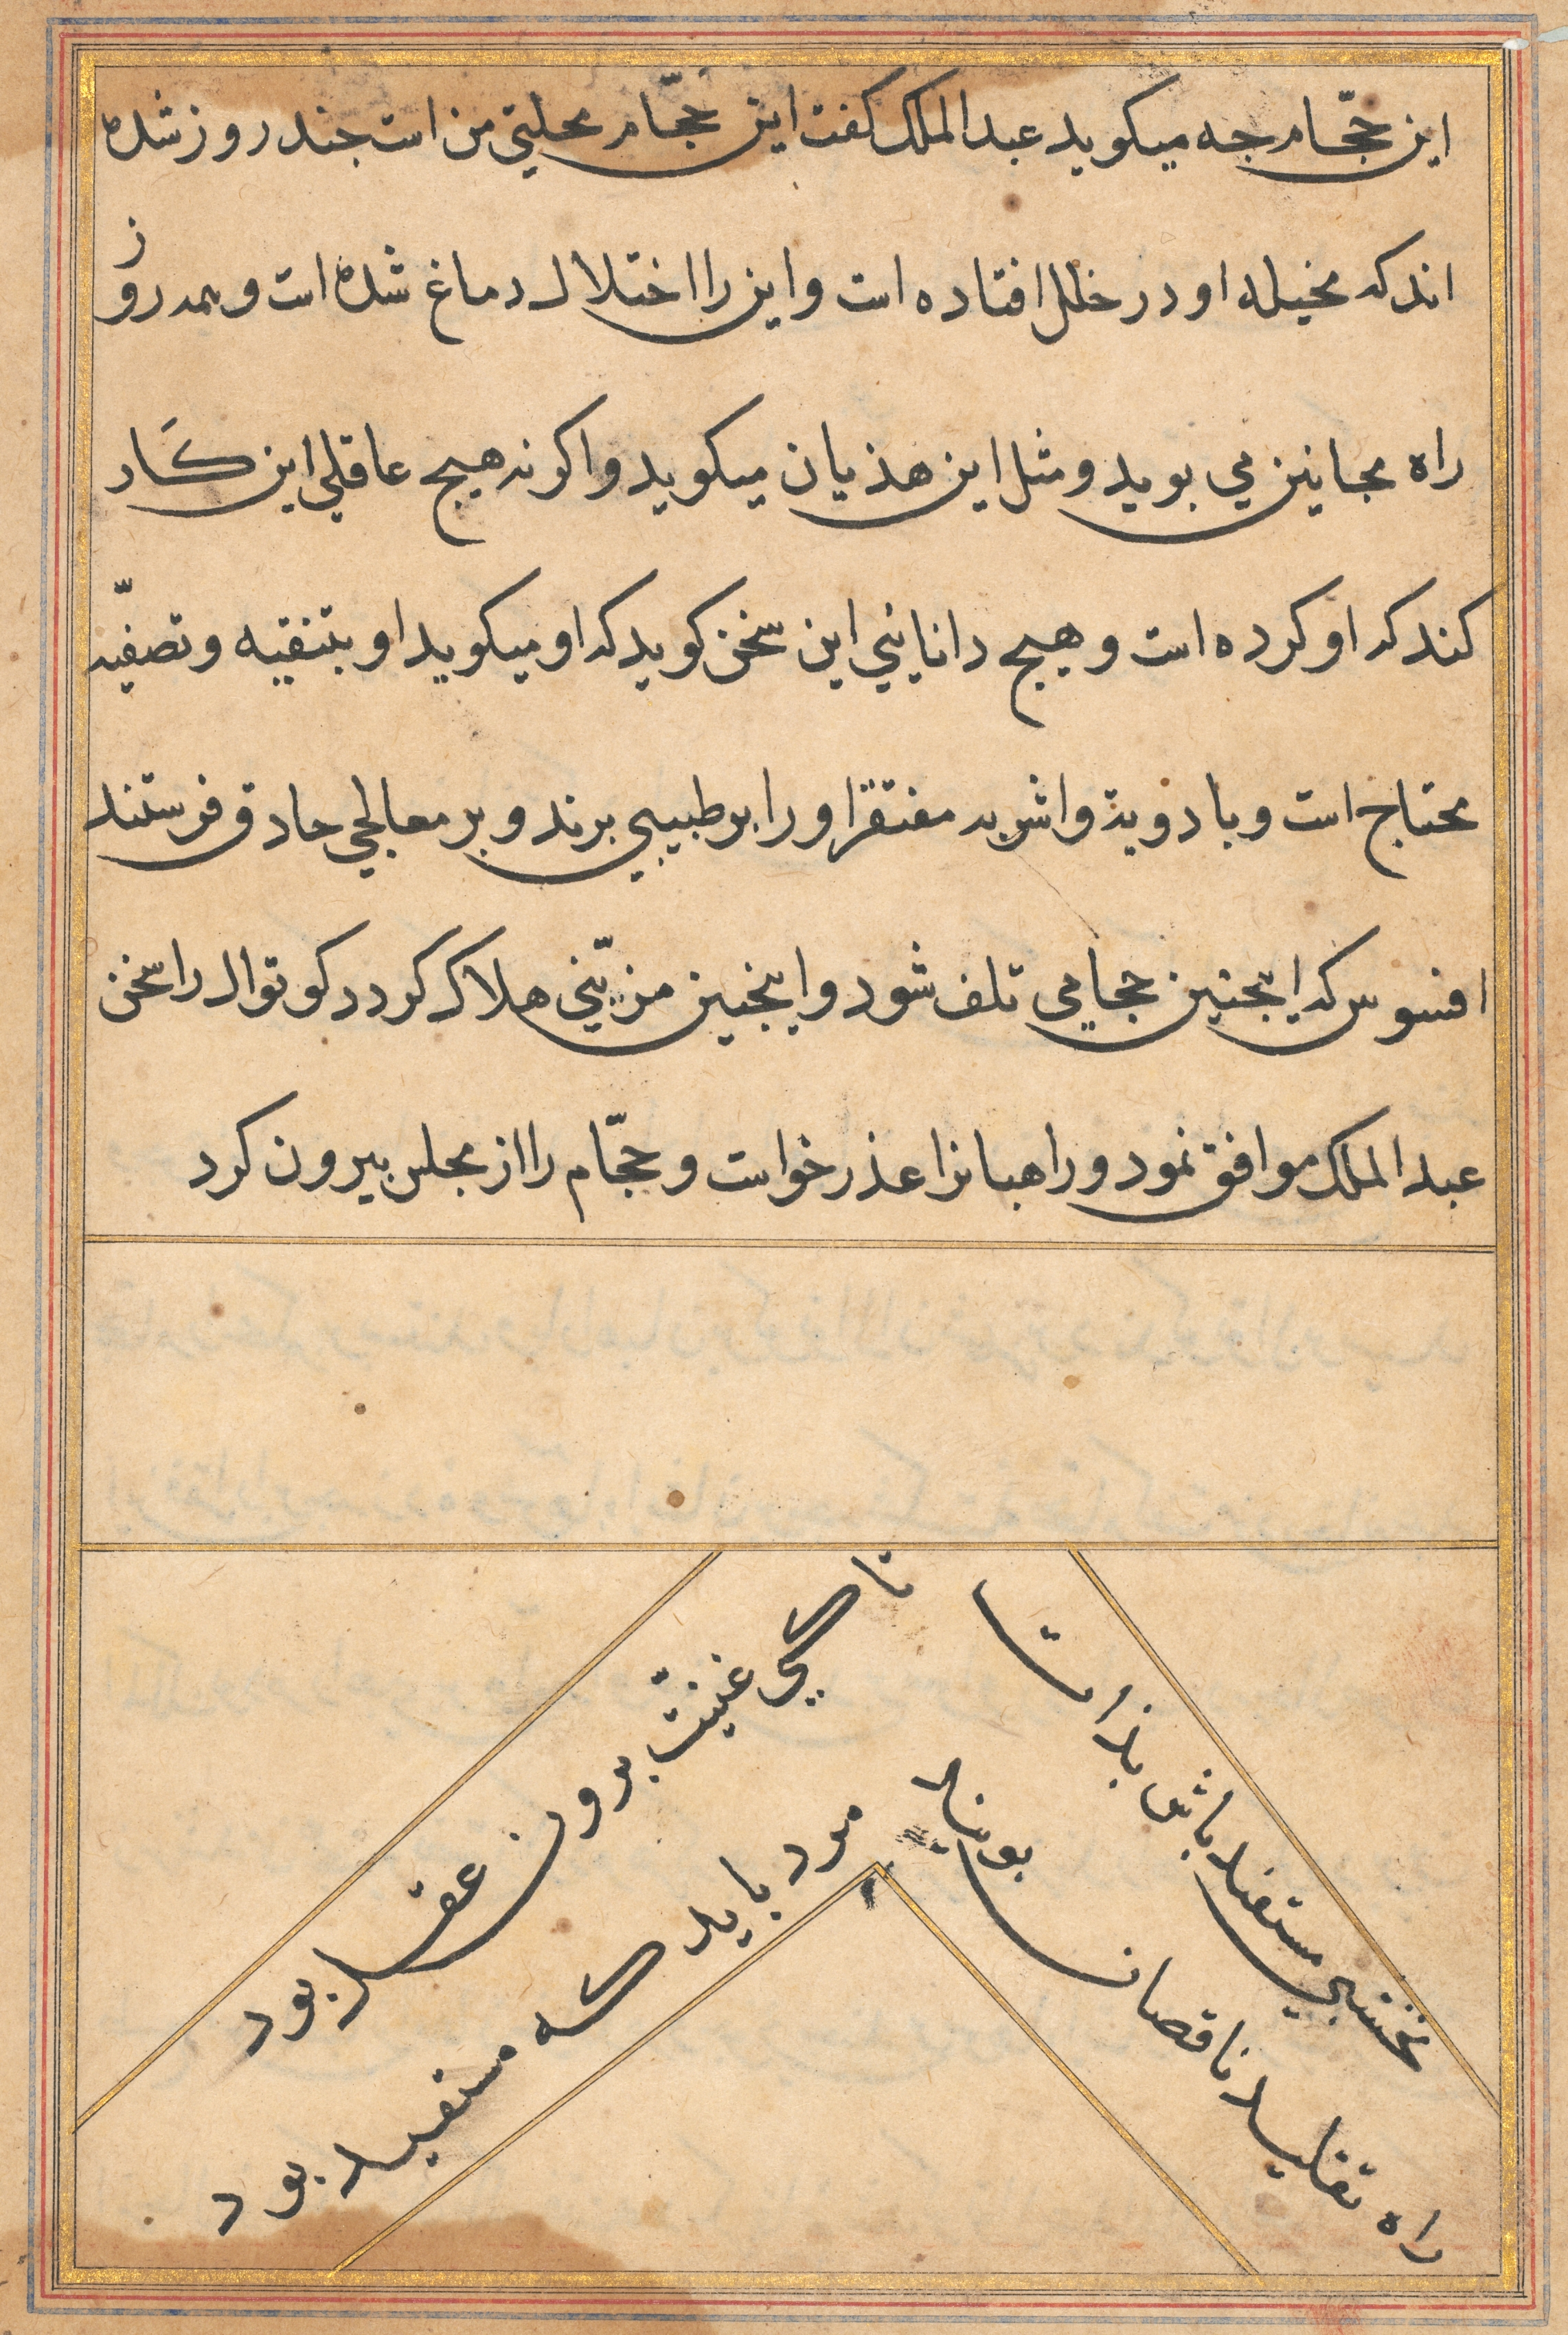 این حجّام جه میکوید عبد الملک کفت این حجّام محلیتی من است جند روز شده
اند که مخیله او در خلل افتاده است و این را اختلال دماغ شده است و همه روز
راه مجانین می بوید و مثل این هذیان میکوید و اکر نه هیج عاقلی این کار
کند که او کرده است و هیج دانایئی این سخن کوید که او میکوید او بتنقیه و تصفیّه
محتاج است و بادویة و اشربه مفتقر او را بر طبیبی برند و بر معالجی حاذق فرستند
افسوس که اینجنین حجامی تلف شود و اینجنین مزیّنی هلاک کردد کوتوال را سخن
عبد الملک موافق نمود و راهبانرا عذر خواست و حجّام را از مجلس بیرون کرد
نخشبی مستعد باش بذات
تا کی غنیّت برون عقد بود
راه تقلید ناقصان بویند
مرد باید که مستفید بود